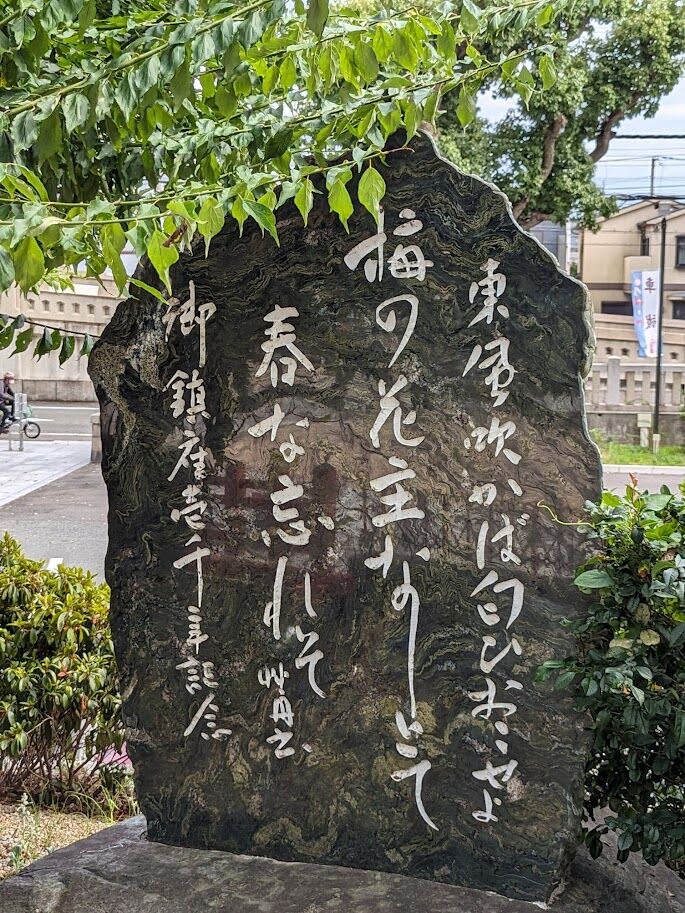 東風吹かば匂ひおこせよ
梅の花主なしとて
春な忘れいそ
御鎮座壱千年記念